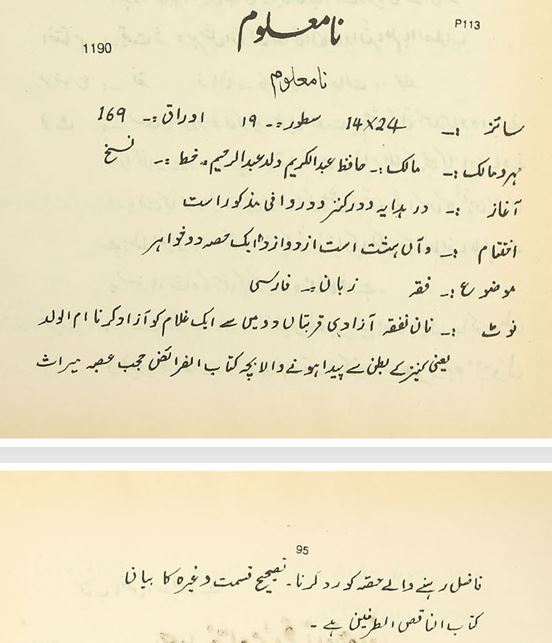 نامعلوم
P113
1190
نامعلوم
سائز :۔ 14X24 سطور :۔ 19 اوراق :۔ 169
مہر و مالک :۔ مالک :۔ حافظ عبدالکریم ولد عبدالرحیم ۔ خط :۔ نسخ
آغاز :۔ در ہدایہ و در کنز و در وافی مذکور است
اختتام :۔ و آں ہشت است از دوازدہ ایک حصہ دو خواہر
موضوع :۔ فقہ زبان :۔ فارسی
نوٹ :۔ نان نفقہ آزادی قربتاں و دمیں سے ایک غلام کو آزاد کرنا ام الولد
یعنی کنیز کے بطن سے پیدا ہونے والا بچہ کتاب الفرائض حجب عصبہ میراث
95
فاضل رہنے والے حصہ کو رد کرنا۔ تصحیح قسمت وغیرہ کا بیان
کتاب ناقص الطرفین ہے ۔